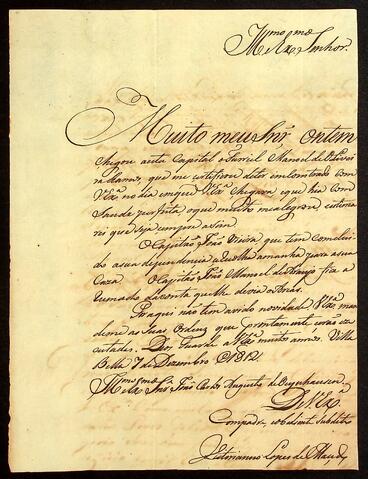 Illmo e Exmo Senhor.
Muito meu Snr Ontem
chegou a esta Capital o Furriel Manoel de Oliveira
Ramos, que me certificou de ter incontrado com
VExa no dia em que VExa chegava e que hia com
Saude perfeita, o que muito me alegrou, estima
rei que seja sempre assim.
O Capitão João Vieira que tem concluido
a sua dependencia a manha para a sua
Caza. O Capitão João Manoel de Araujo fica
da conta que lhe devia
Por aqui não tem avido novidade VExa man
deme as suas Ordens que prontamente serão ex
cutadas. Deos Guarde a VExa muitos annos. Villa
Bella 7 de Dezembro de 1812
Illmo e Exmo Snr João Carlos Augusto de Oeynhausen
De VExa
Compadre, e obediente Subdito
Victoriano Lopes de